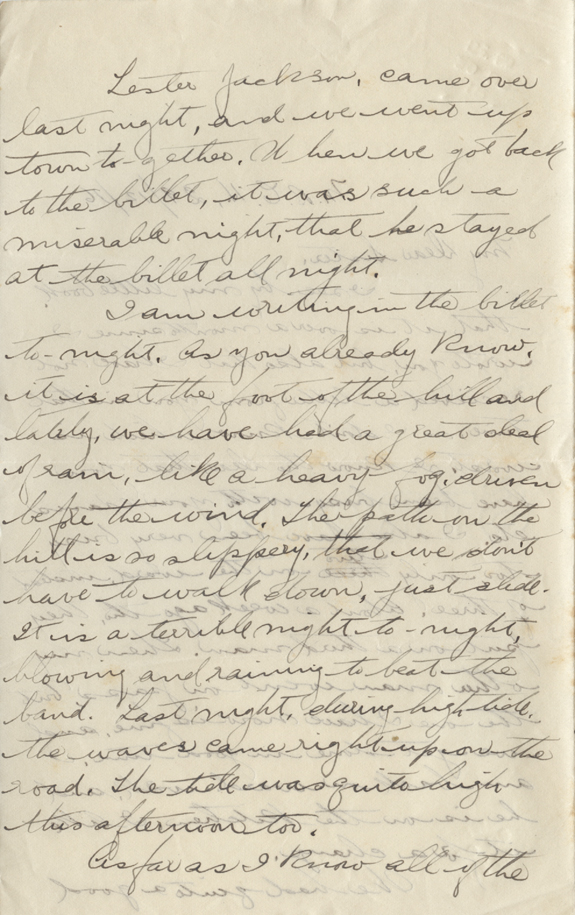 Lester Jackson, came over
last night, and we went up
town to-gether. When we got back
to the billet, it was such a
miserable night, that he stayed
at the billet all night.
I am writing in the billet
to-night. As you already know,
it is at the foot of the hill and
lately, we have had a great deal
of rain, like a heavy fog, driven
before the wind. The path on the
hill is so slippery, that we don't
have to walk down, just slide.
It is a terrible night to-night,
blowing and raining to beat the
band. Last night, during high tide,
the waves came right up on the
road. The tide was quite high
this afternoon too.
As far as I know all of the